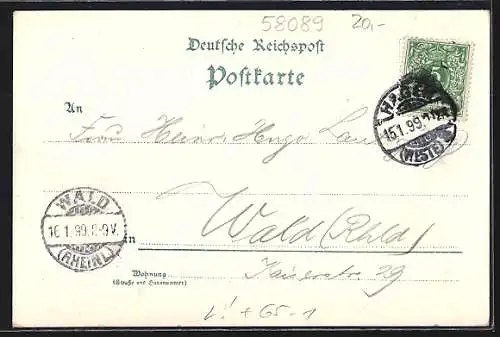 58089 20,-
Deutsche Reichspost
Postkarte
An
Frau Heinr. Hugo
HAGEN
15.1.99.
(WESTF.)
WALD
16.1.99.8-9V.
(RHEINL.)
in Wald (Rhld)
Kaiserstr. 29
Wohnung
(Straße und Hausnummer)